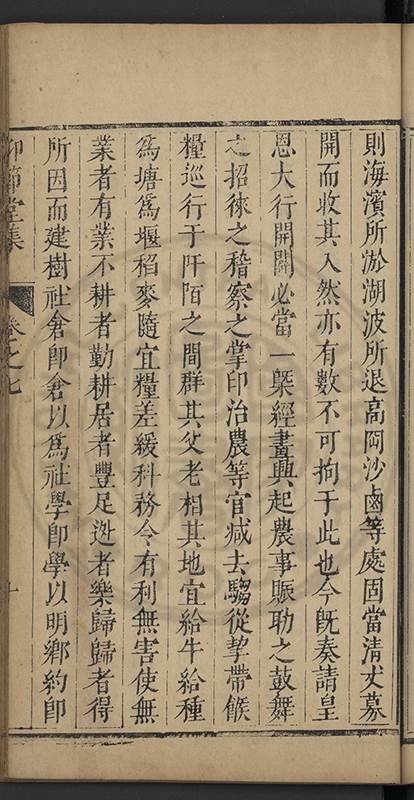 則海濱所淤湖波所退高阿沙鹵等處固當清丈募
開而收其入然亦有數不可拘于此也今旣奏請皇
恩大行開闢必當一槩經畫興起農事賑助之鼓舞
之招徠之稽察之掌印治農等官减去騶從挚帶餱
糧巡行于阡陌之間群其父老相其地宜給牛給種
爲塘爲堰稻麥隨宜糧差緩科務令有利無害使無
業者有業不耕者勤耕居者豐足逃者樂歸歸者得
所因而建樹社倉卽倉以爲社學卽學以明鄉約卽
仰節堂集
卷之七
十